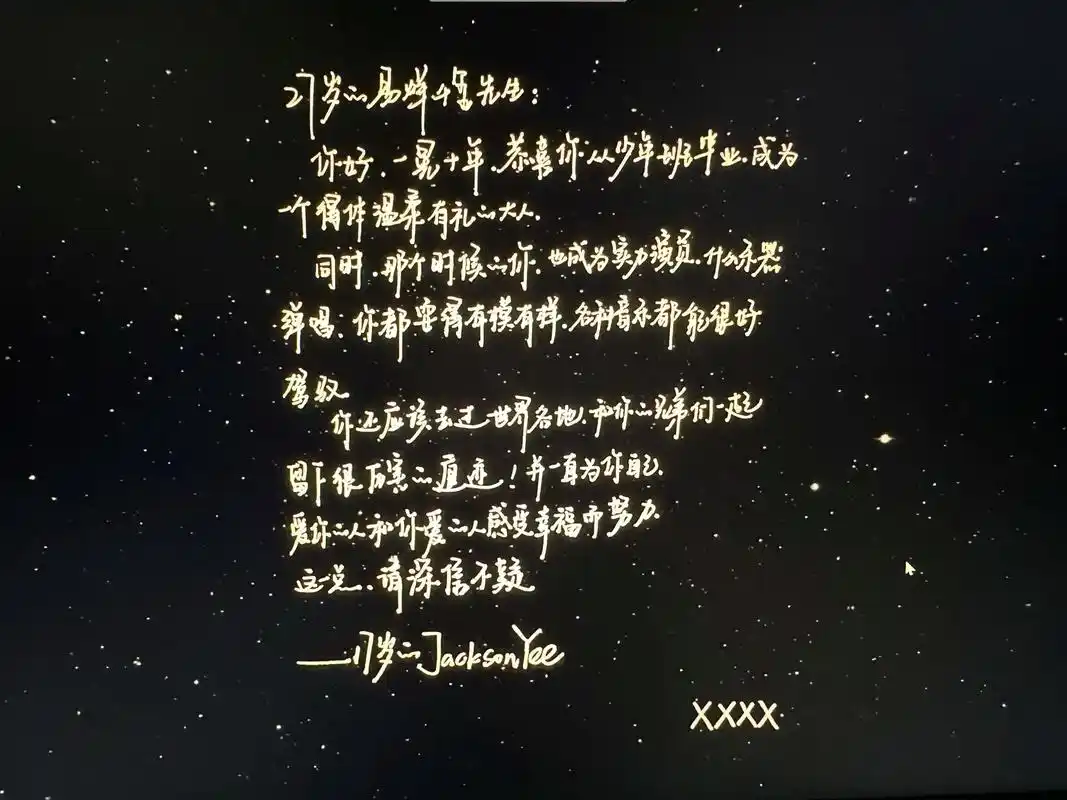 27岁的易烊千玺先生：
你好，一晃十年，恭喜你从少年班毕业，成为
一个得体温柔有礼的大人。
同时，那个时候的你，也成为实力演员，什么乐器
弹唱，你都耍得有模有样，各种音乐都能很好
驾驭
你还应该去过世界各地，和你的兄弟们一起
留下很厉害的痕迹！并一直为你自己，
爱你的人和你爱的人感受幸福而努力。
这一点，请深信不疑
——17岁的Jackson Yee
XXXX